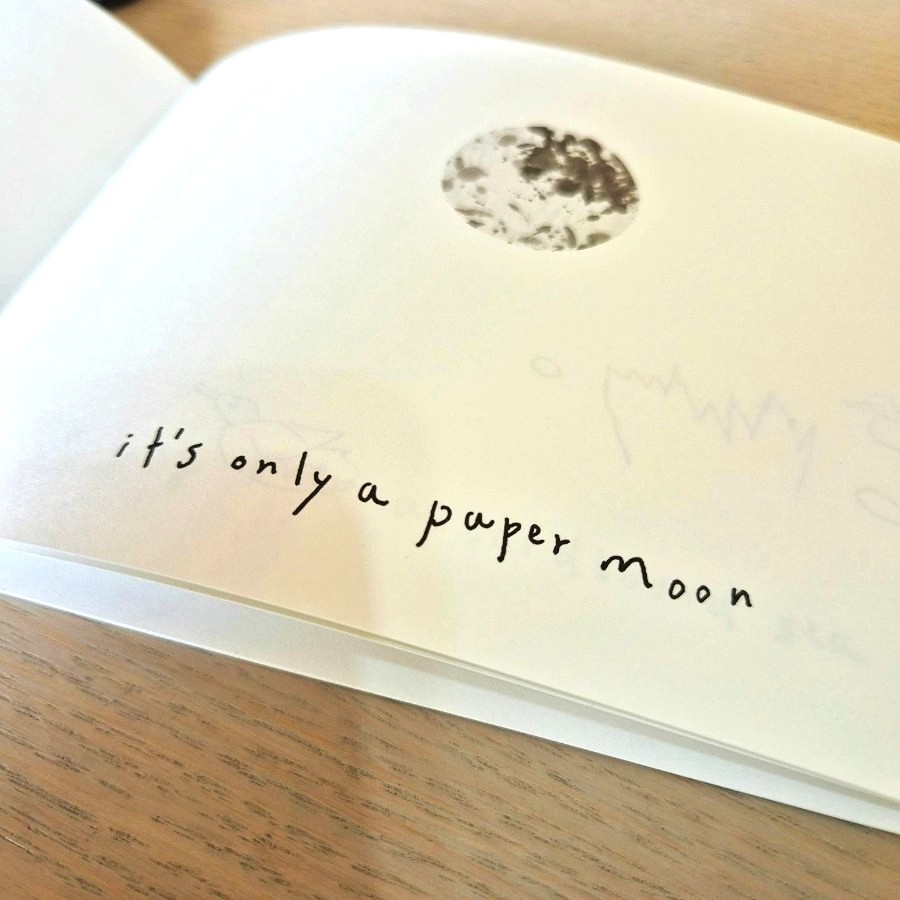 it's only a paper moon